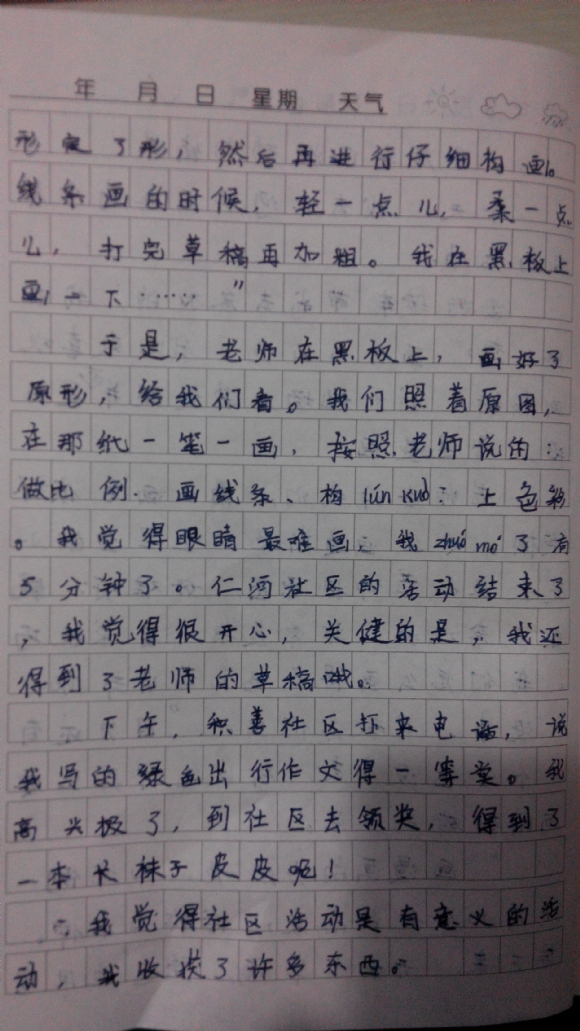 年 月 日 星期 天气
形定了形，然后再进行仔细构画。
线条画的时候，轻一点儿，柔一点
儿，打完草稿再加粗。我在黑板上
画一下……”
于是，老师在黑板上，画好了
原形，给我们看。我们照着原图，
在那纸一笔一画，按照老师说的：
做比例、画线条、构lún kuò：上色彩
。我觉得眼睛最难画，我zhuó mó了有
5分钟了。仁河社区的活动结束了
，我觉得很开心，关健的是，我还
得到了老师的草稿哦。
下午，积善社区打来电话，说
我写的绿色出行作文得一等奖。我
高兴极了，到社区去领奖，得到了
一本长袜子皮皮呢！
我觉得社区活动是有意义的活
动，我收获了许多东西。